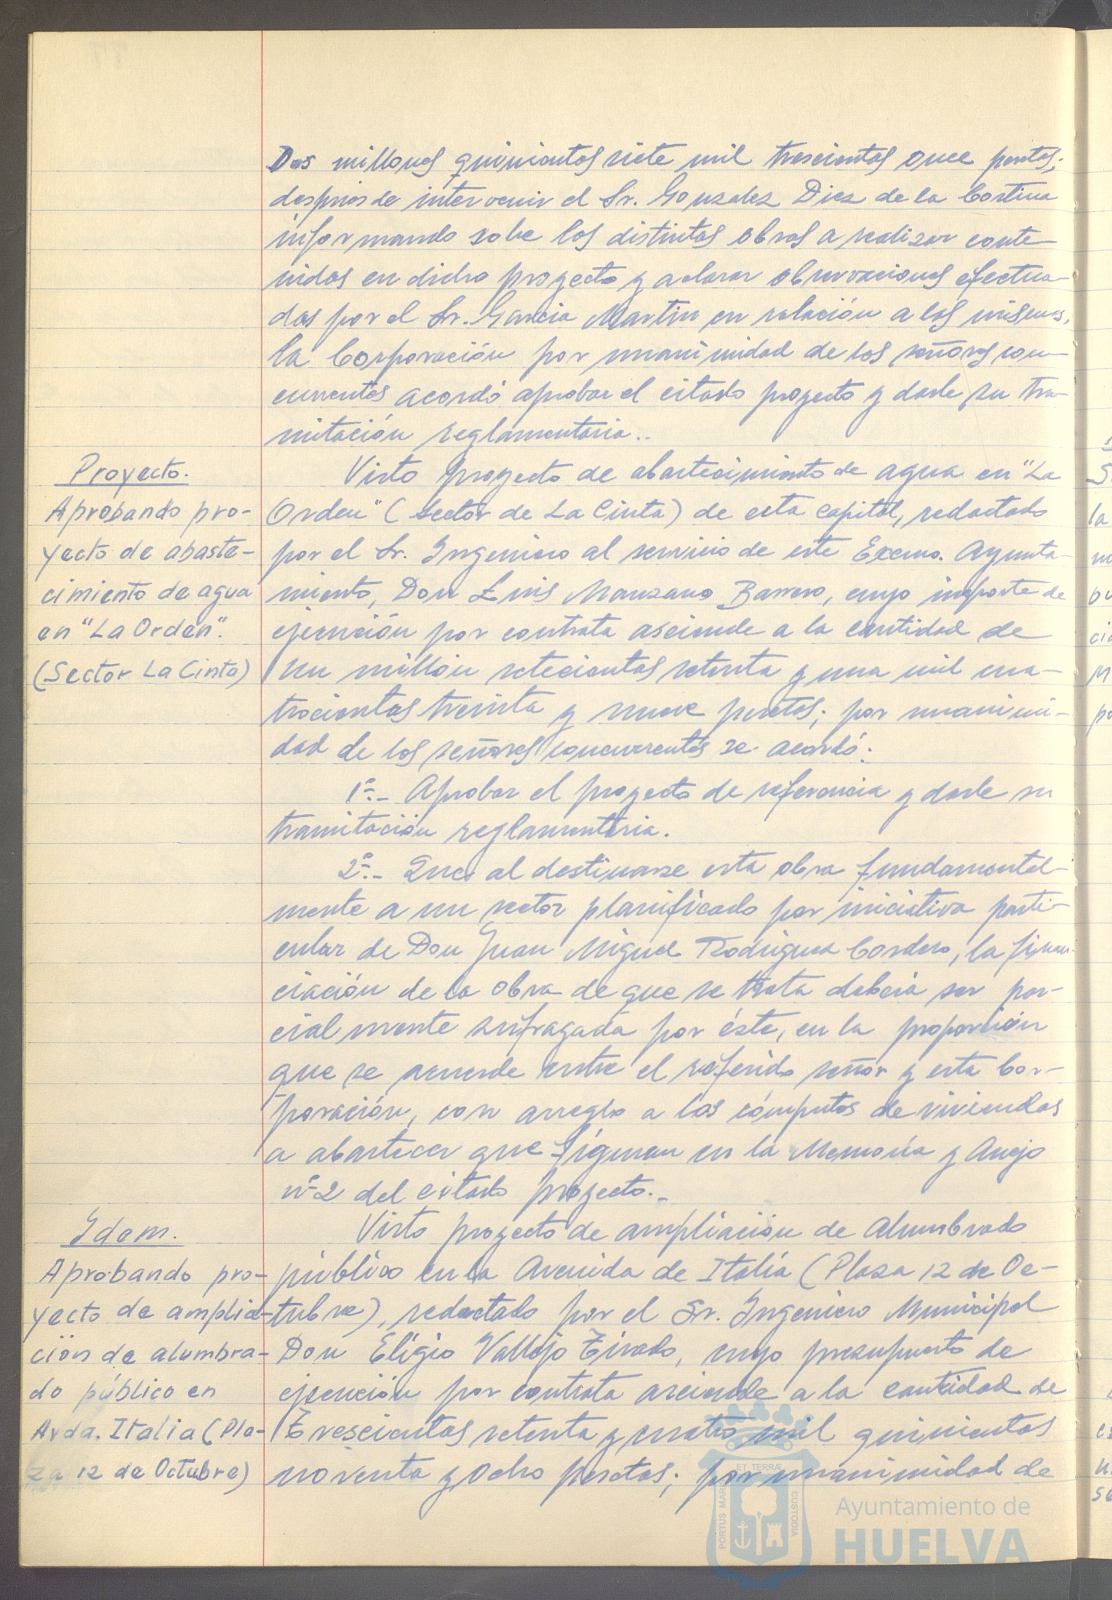 Dos millones quinientas siete mil trescientas once pesetas;
después de intervenir el Sr. Gonzalez Diez de la Cortina
informando sobre las distintas obras a realizar conte-
nidas en dicho proyecto y aclarar observaciones efectua-
das por el Sr. Garcia Martin en relación a las mismas,
la Corporación por unanimidad de los señores con-
currentes acordó aprobar el citado proyecto y darle su tra-
mitación reglamentaria..
Proyecto.
Aprobando pro-
yecto de abaste-
cimiento de agua
en "La Orden".
(Sector La Cinta)
Visto proyecto de abastecimiento de agua en "La
Orden" (Sector de La Cinta) de esta capital, redactado
por el Sr. Ingeniero al servicio de este Excmo. Ayunta-
miento, Don Luis Manzano Barrero, cuyo importe de
ejecución por contrata asciende a la cantidad de
Un millón setecientas setenta y una mil cua-
trocientas treinta y nueve pesetas; por unanimi-
dad de los señores concurrentes se acordó:
1º.- Aprobar el proyecto de referencia y darle su
tramitación reglamentaria.
2º.- Que al destinarse esta obra fundamental-
mente a un sector planificado por iniciativa parti-
cular de Don Juan Miguel Rodriguez Cordero, la finan-
ciación de la obra de que se trata deberá ser par-
cialmente sufragada por éste, en la proporción
que se acuerde entre el referido señor y esta Cor-
poración, con arreglo a los cómputos de viviendas
a abastecer que figuran en la Memoria y Anejo
nº 2 del citado proyecto.-
Idem.
Aprobando pro-
yecto de amplia-
ción de alumbra-
do público en
Avda. Italia (Pla-
za 12 de Octubre)
Visto proyecto de ampliación de alumbrado
público en la Avenida de Italia (Plaza 12 de Oc-
tubre), redactado por el Sr. Ingeniero Municipal
Don Eligio Vallejo Tirado, cuyo presupuesto de
ejecución por contrata asciende a la cantidad de
Trescientas setenta y cuatro mil quinientas
noventa y ocho pesetas; por unanimidad de
PORTUS MARIS
ET TERRÆ
CUSTODIA
Ayuntamiento de
HUELVA